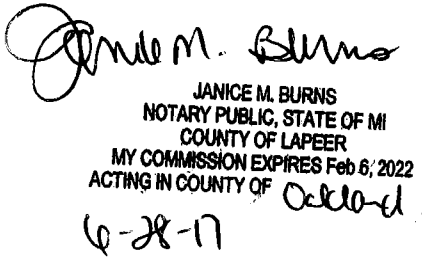 Janice M. Burns
JANICE M. BURNS
NOTARY PUBLIC, STATE OF MI
COUNTY OF LAPEER
MY COMMISSION EXPIRES Feb 6, 2022
ACTING IN COUNTY OF Oakland
6-28-17